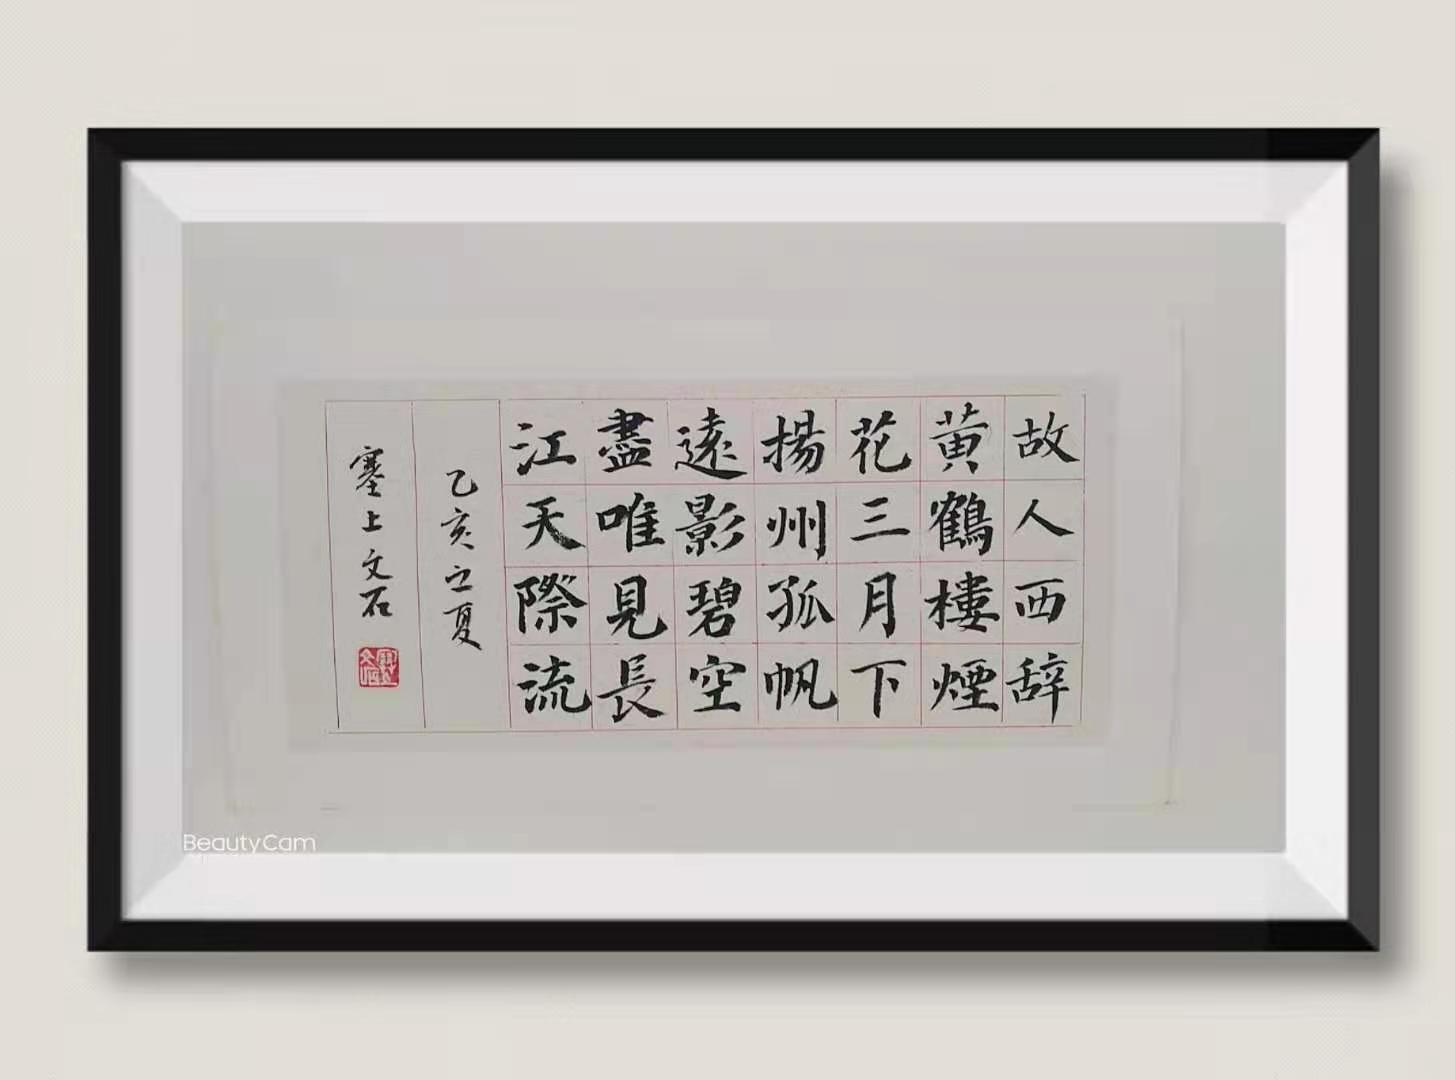 故人西辞
黄鶴樓煙
花三月下
揚州孤帆
遠影碧空
盡唯見長
江天際流
乙亥立夏
塞上文石
BeautyCam